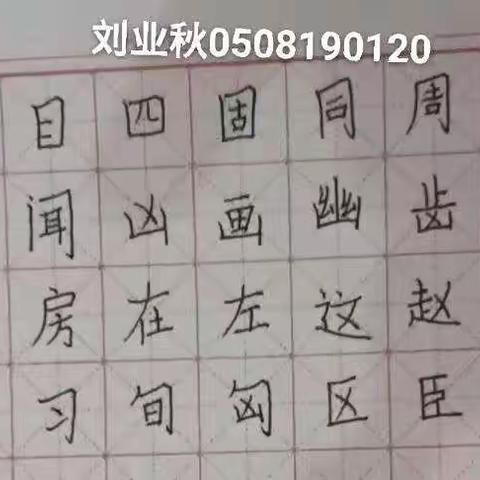 刘业秋0508190120
目四固同周
闻凶画幽齿
房在左这赵
习旬匈区臣